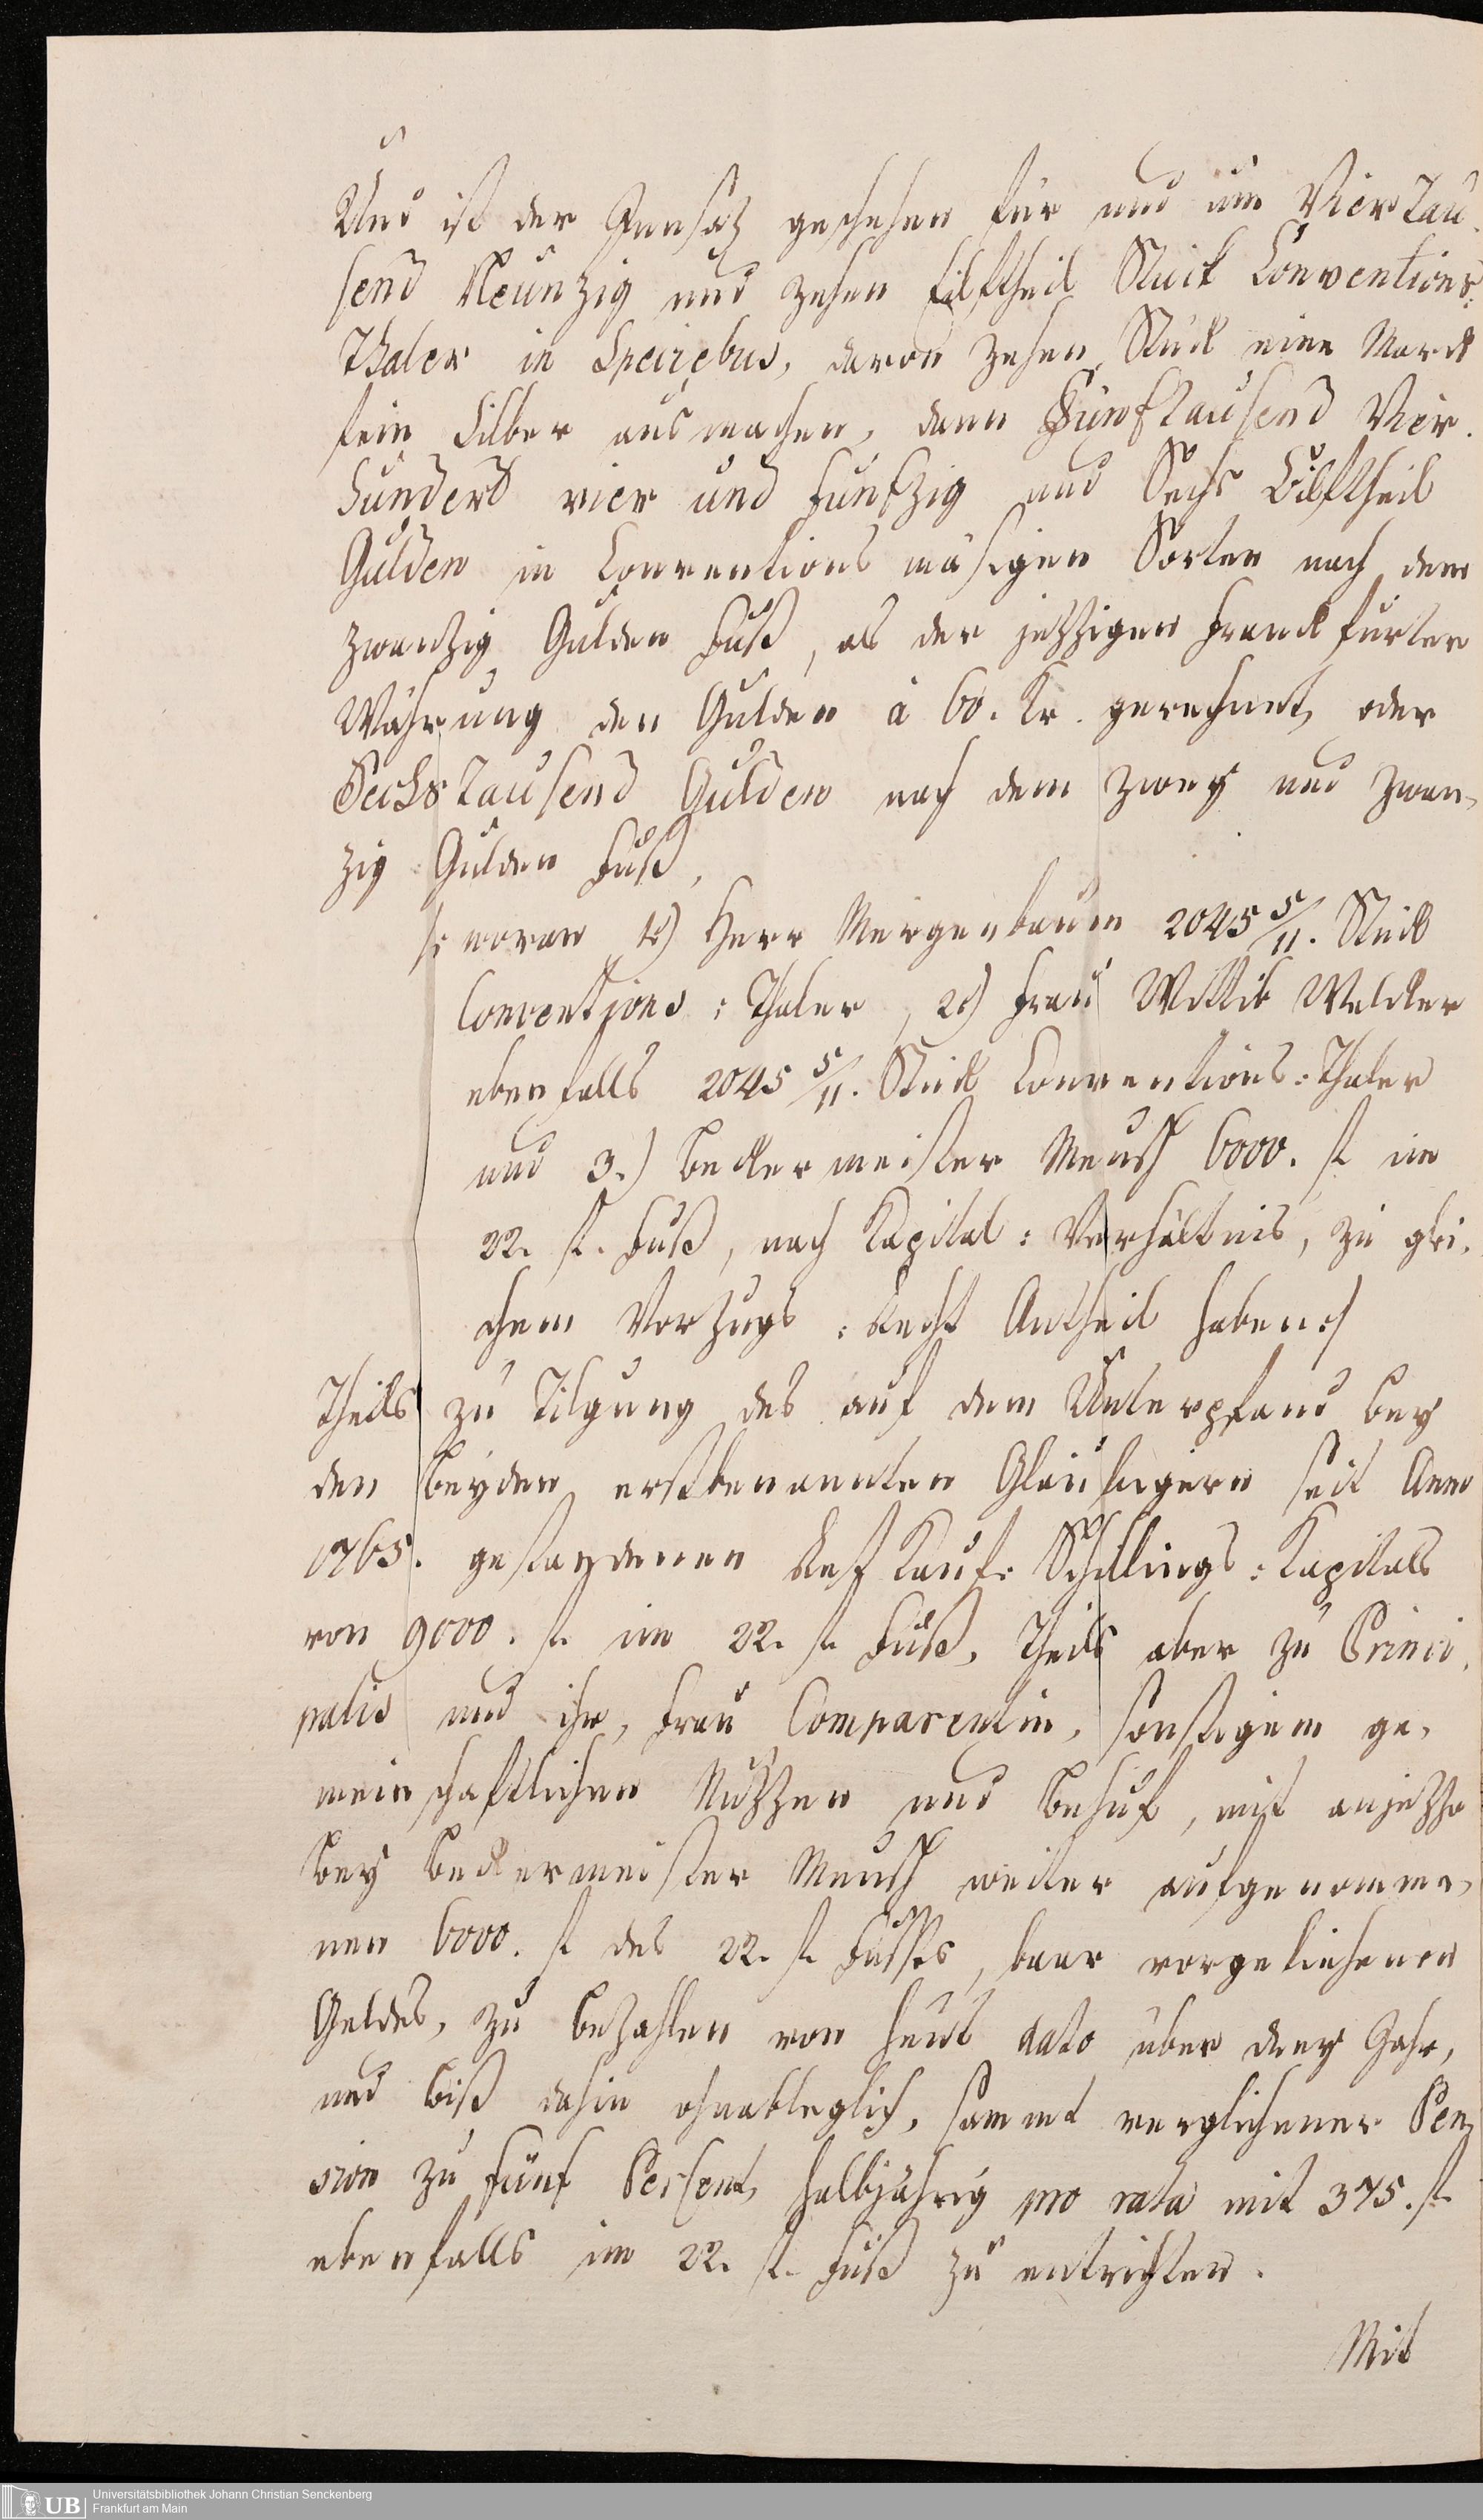 Und ist der Einsatz geschehen für und um Vier Tau-
send Neunzig und zehen Eilftheil Stück Conventions:
Thaler in Speciebus, davon zehen Stück eine Marck
fein Silber ausmachen, dann Fünftausend Vier-
hundert vier und Funfzig und Sechs Eilftheil
Gulden in Conventions mäsigen Sorten nach dem
zwanzig Gulden Fuß, als der jetzigen Franckfurter
Währung den Gulden à 60. Kr. gerechnet, oder
Sechstausend Gulden nach dem zwey und zwan-
zig Gulden Fuß,
/: woran 1.) Herr Mergenbaum 2045 5/11. Stück
Conventions: Thaler, 2.) Frau Wittib Welcker
ebenfalls 2045 5/11. Stück Conventions: Thaler
und 3.) Beckermeister Meusch 6000. f. im
22. f. Fuß, nach Kapital: Verhältnis, zu glei-
chem Vorzugs: Recht Antheil haben :/
Theils zu Tilgung des auf dem Unterpfand bey
den beyden erstbenannten Gläubigern seit Anno
1765. gestandenen Rest Kauf: Schillings: Kapitals
von 9000. f. im 22. f. Fuß, Theils aber zu Princi-
palis und ihr, Frau Comparentin, sonstigem ge-
meinschaftlichen Nutzen und Behuf, mit anjetzo
bey Beckermeister Meusch weiter aufgenomme-
nen 6000. f. des 22. f. Fusses, baar vorgeliehenen
Geldes, zu bezahlen von heut dato über drey Jahr,
und biß dahin ohnableglich, sammt verglichener Pen-
sion zu fünf Persent, halbjährig pro rata mit 375. f.
ebenfalls im 22. f. Fuß zu entrichten.
Mit
UB Universitätsbibliothek Johann Christian Senckenberg
Frankfurt am Main